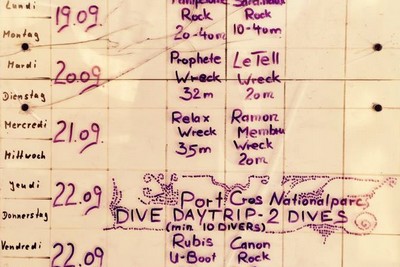 Lundi
Montag
19.09.
Rock
20-40m
Rock
10-40m
Mardi
Dienstag
20.09.
Prophete
Wreck
32m
Le Tell
Wreck
20m
Mercredi
Mittwoch
21.09.
Relax
Wreck
35m
Ramon
Membru
Wreck
20m
Jeudi
Donnerstag
22.09.
Port Cros Nationalparc
DIVE DAYTRIP - 2 DIVES
(min. 10 DIVERS)
Vendredi
22.09
Rubis
U-Boot
Canon
Rock